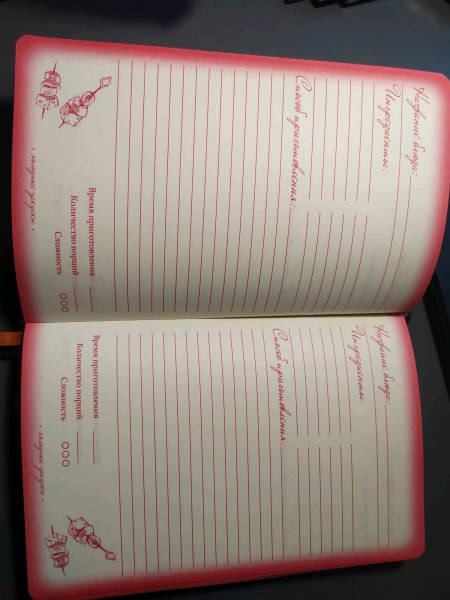 Название блюда:
Ингредиенты:
Способ приготовления:
Время приготовления
Количество порций
Сложность
• холодные закуски •
Название блюда:
Ингредиенты:
Способ приготовления:
Время приготовления
Количество порций
Сложность
• холодные закуски •